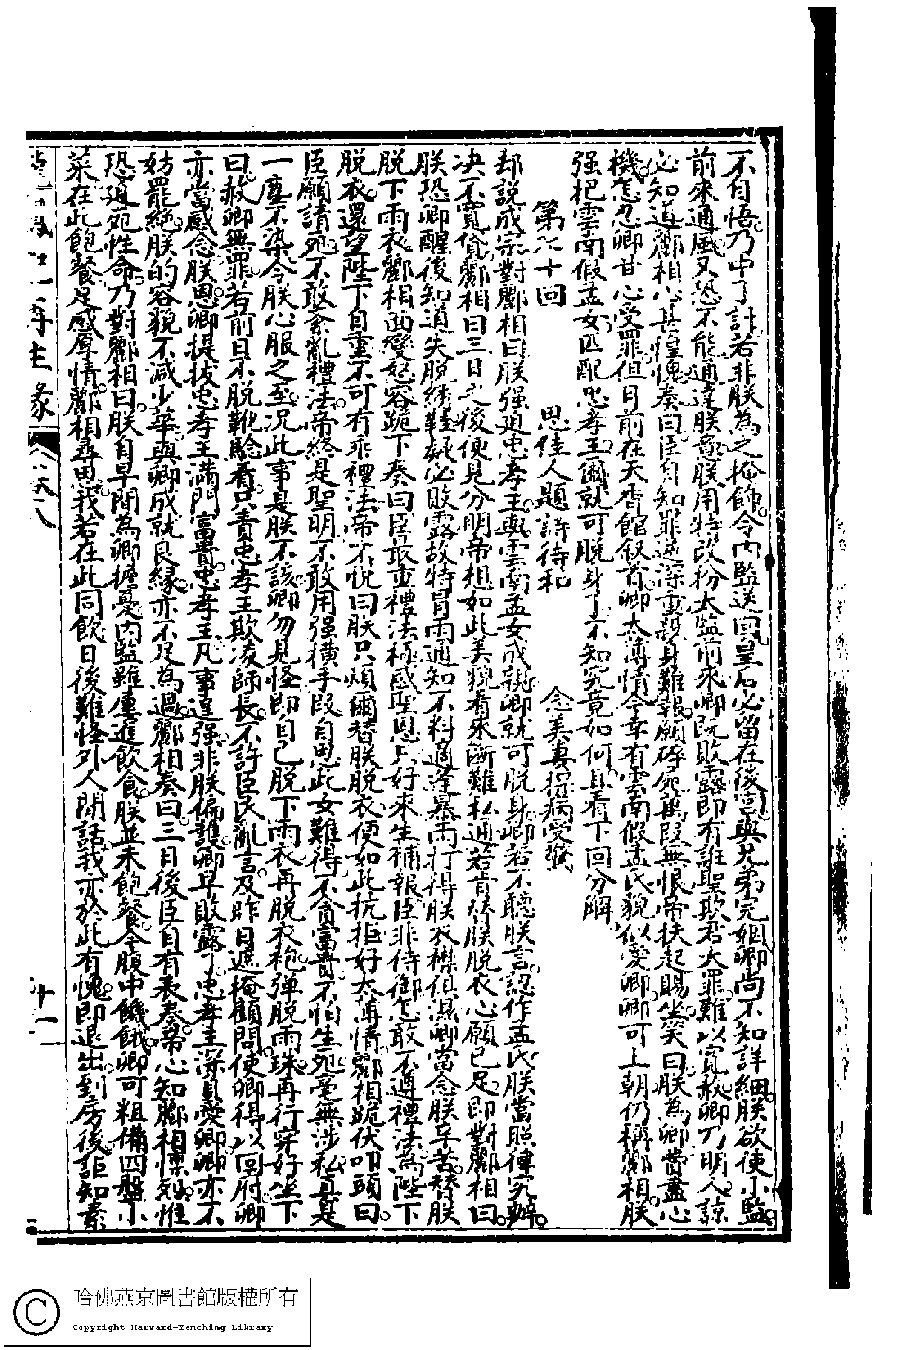 不自悟乃中了計若非朕為之掩飾令內監送回皇后必留在後宮與兄弟完姻卿尚不知詳細朕欲使小監
前來通風又恐不能通達朕意朕用特改扮太監前來卿既敗露即有誑聖欺君大罪難以寬赦卿乃明人諒
必知道酈相心甚惶愧奏曰臣自知罪逆深重設身難報願碎死萬段無恨帝扶起賜坐笑曰朕為卿費盡心
機怎忍卿甘心受罪但日前在天香館敘首卿太薄情今幸有雲南假孟氏貌似愛卿卿可上朝仍稱酈相朕
强把雲南假孟女匹配忠孝王爾就可脫身了不知究竟如何且看下回分解
第六十回 思佳人題詩待和 念美妻得病受驚
却說成宗對酈相曰朕强迫忠孝王與雲南孟女成親卿就可脫身卿若不聽朕言認作孟氏朕當照律究辦
决不寬貸酈相曰三日之後便見分明帝想如此美貌看來斷難私通若肯替朕脫衣心願已足即對酈相曰
朕恐卿醒後知道失脫綉鞋疑必敗露故特冒雨通知不料適逢暴雨打得朕衣襟俱濕卿當念朕辛苦替朕
脫下雨衣酈相面變妃容跪下奏曰臣最重禮法極感聖恩只好來生補報臣非侍御怎敢不遵禮法為陛下
脫衣還望陛下自重不可有乖禮法帝不悅曰朕只煩爾替朕脫衣便如此抗拒好太薄情酈相跪伏叩頭曰
臣願請死不敢紊亂禮法帝終是聖明不敢用强橫手段自思此女難得不貪富貴不怕生死毫無涉私真是
一塵不染令朕心服之至况此事是朕不該卿勿見怪即自己脫下雨衣再脫衣袍彈脫雨珠再行穿好坐下
曰赦卿無罪若前日不脫靴驗看只責忠孝王欺凌師長不許臣民亂言及昨日遮掩顧問使卿得以回府卿
亦當感念朕恩卿提拔忠孝王滿門富貴忠孝王凡事逞强非朕偏護卿早敗露了忠孝王深負愛卿卿亦不
妨罷絕朕的容貌不減少華與卿成就良緣亦不足為過酈相奏曰三日後臣自有表奏帝心知酈相懍烈惟
恐迫死性命乃對酈相曰朕自早間為卿擔憂內監雖屢進飲食朕並未飽餐今腹中饑餓卿可粗備四盤小
菜在此飽餐足感厚情酈相尋思我若在此同飲日後難怪外人閒話我亦於此有愧即退出到房後詎知素
再生緣 卷八 十一
哈佛燕京圖書館版權所有
Copyright Harvard-Yenching Library